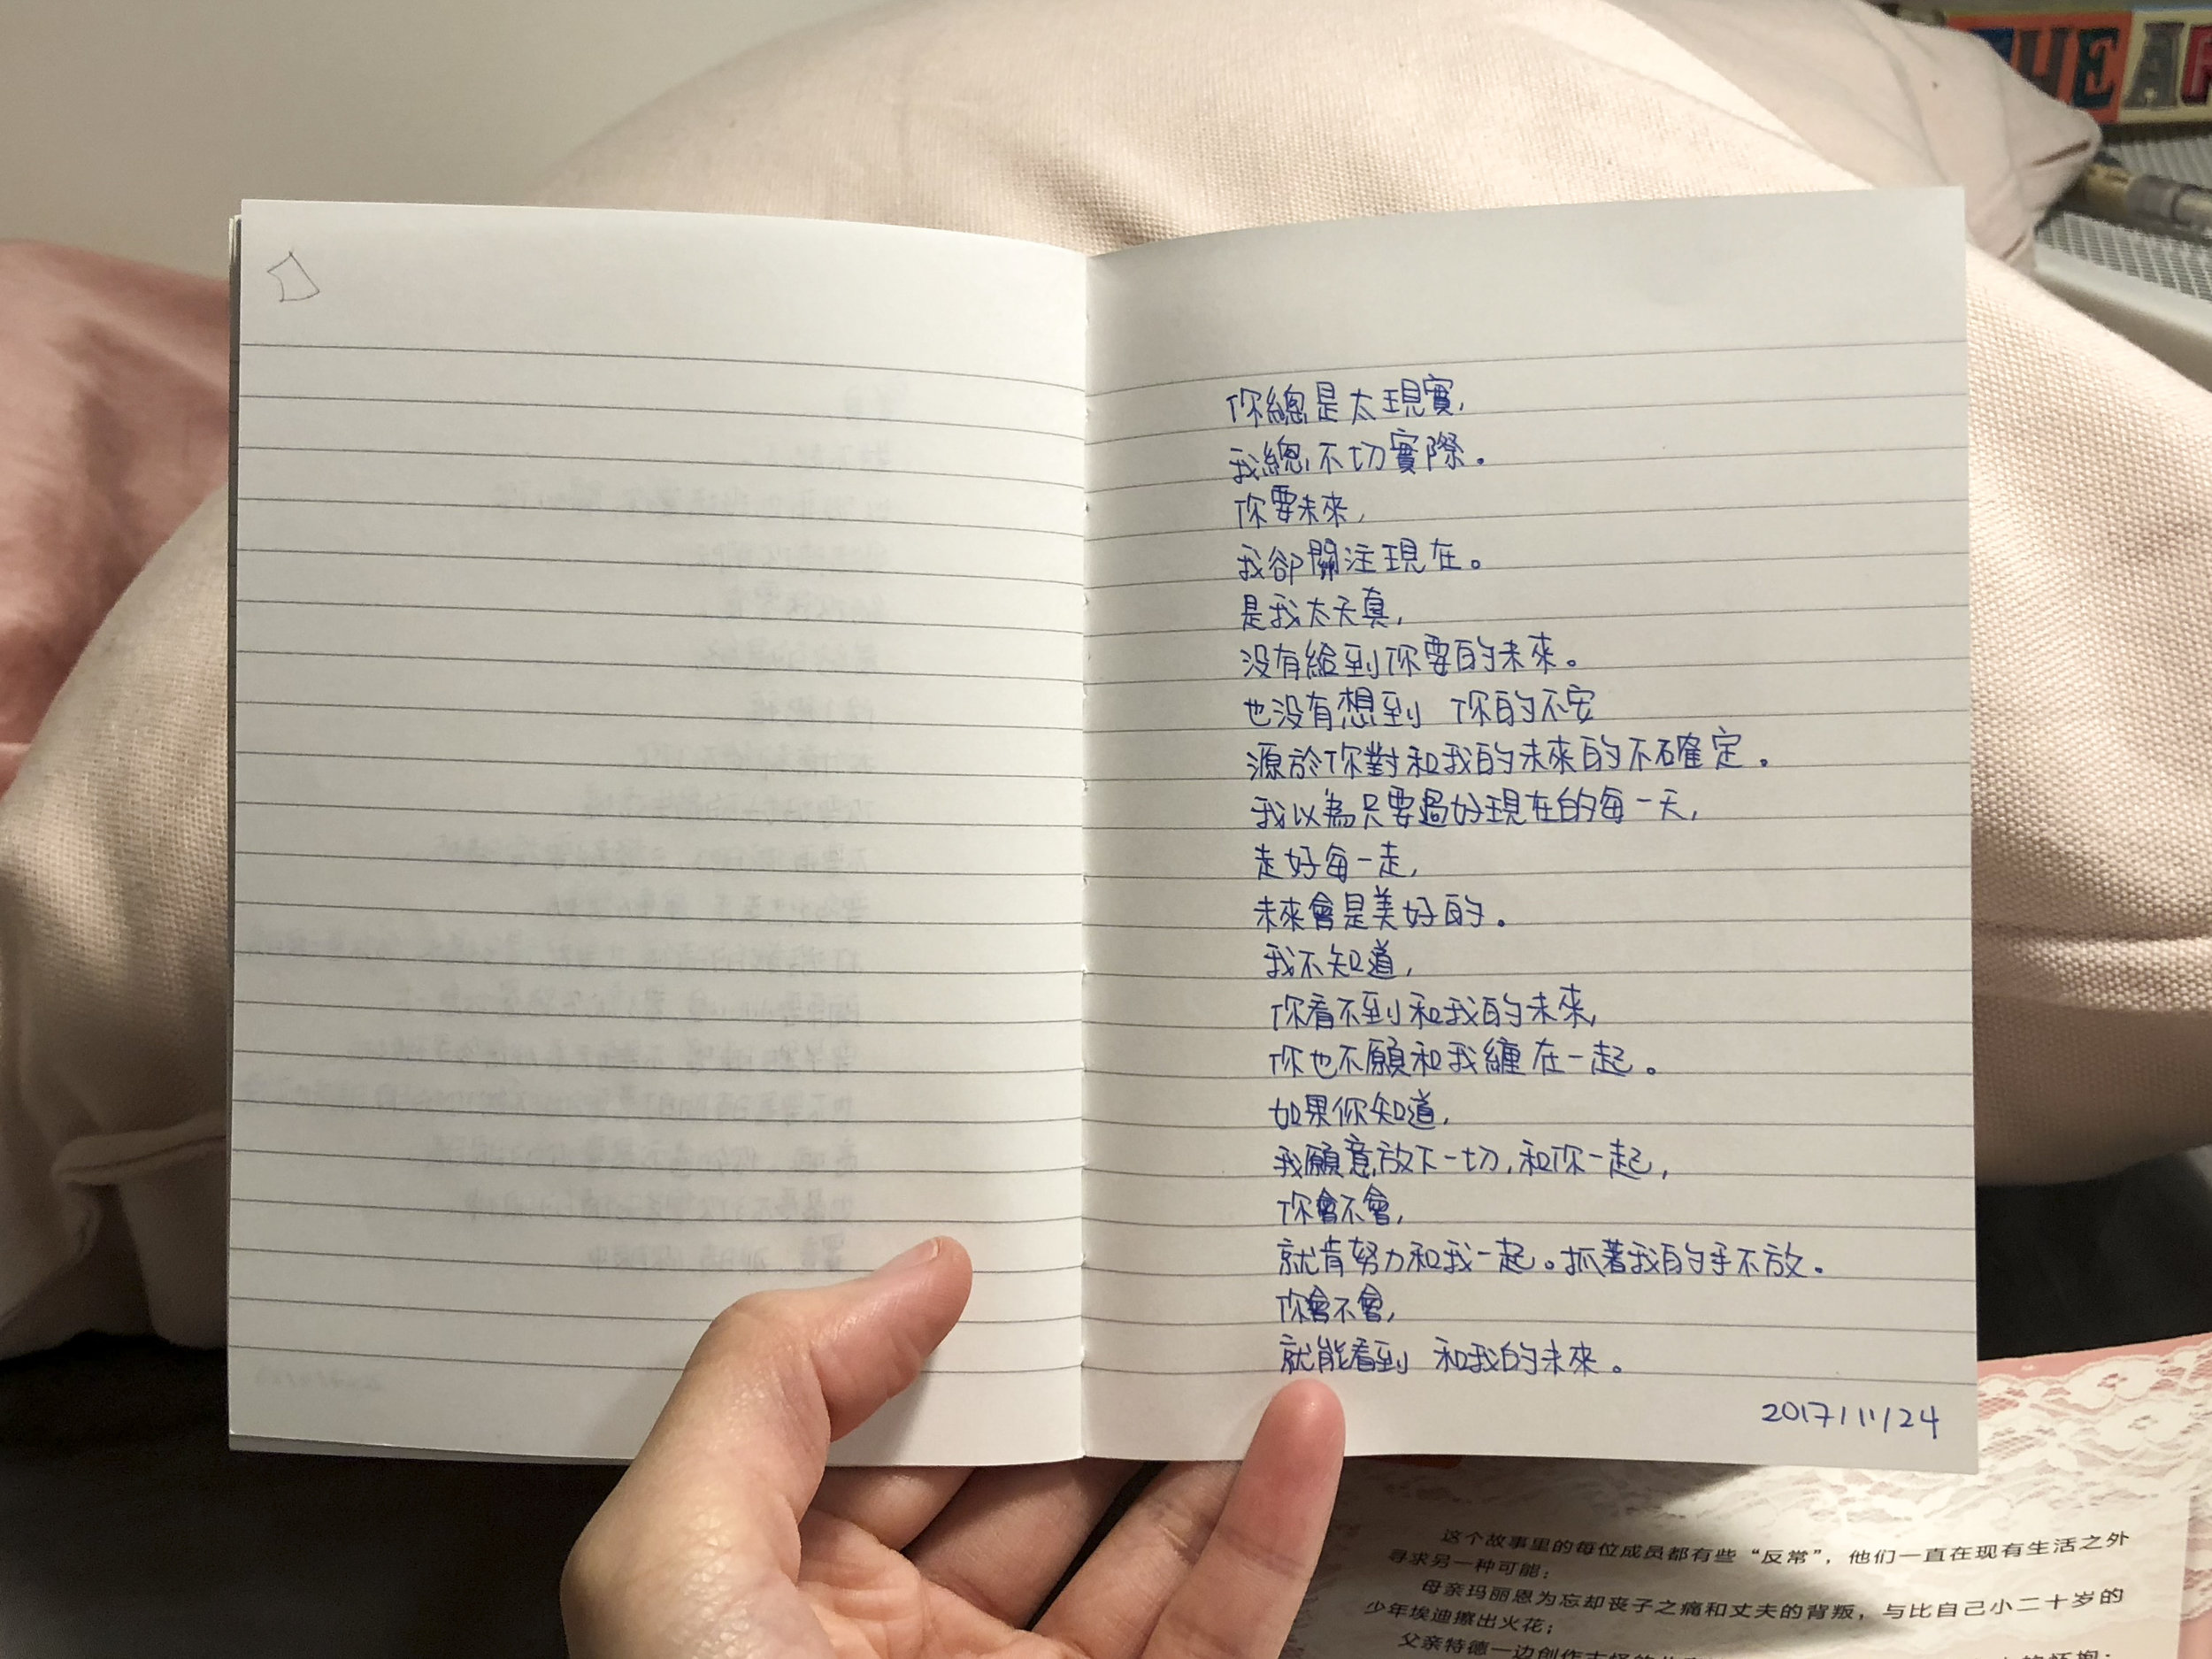 你總是太現實,
我總不切實際。
你要未來,
我卻關注現在。
是我太天真,
没有給到你要的未來。
也没有想到 你的不安
源於你對和我的未來的不確定。
我以為只要過好現在的每一天,
走好每一走,
未來會是美好的。
我不知道,
你看不到和我的未來,
你也不願和我纏在一起。
如果你知道,
我願意放下一切,和你一起,
你會不會,
就肯努力和我一起。抓著我的手不放。
你會不會,
就能看到 和我的未來。
2017/11/24
这个故事里的每位成员都有些“反常”，他们一直在现有生活之外
寻求另一种可能：
母亲玛丽恩为忘却丧子之痛和丈夫的背叛，与比自己小二十岁的
少年埃迪擦出火花；
父亲特德一边创作